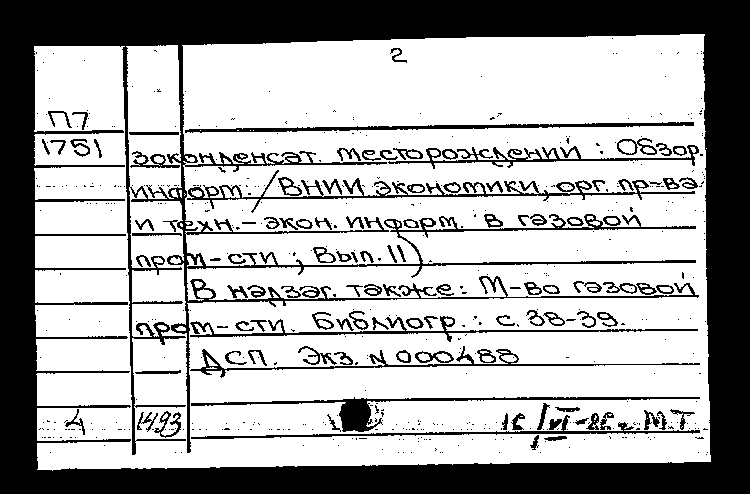 2
П7
1751 зоконденсат. месторождений : Обзор.
информ. / ВНИИ экономики, орг. пр-ва
и техн.-экон. информ. в газовой
пром-сти ; Вып. 11).
В надзаг. также: М-во газовой
пром-сти. Библиогр.: с. 38-39.
ДСП. Экз. N 000488
4 1493 16/VI-86 г. М.Т.